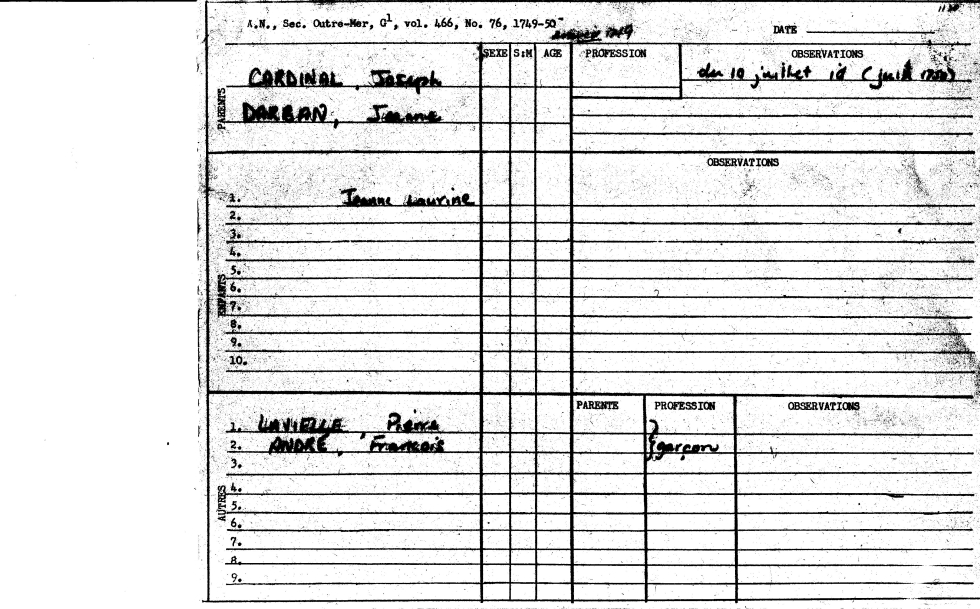 A.N., Sec. Outre-Mer, G1, vol. 466, No. 76, 1749-50
DATE
SEXE S:M AGE PROFESSION OBSERVATIONS
CARDINAL, Joseph du 10 juillet id (juil 1750)
PARENTS
DARBAN, Jeanne
OBSERVATIONS
1. Jeanne Laurine
2.
3.
4.
5.
ENFANTS
6.
7.
8.
9.
10.
PARENTE PROFESSION OBSERVATIONS
1. LAVIELLE Pierre
2. ANDRÉ, Francois garcon
3.
AUTRES
4.
5.
6.
7.
8.
9.